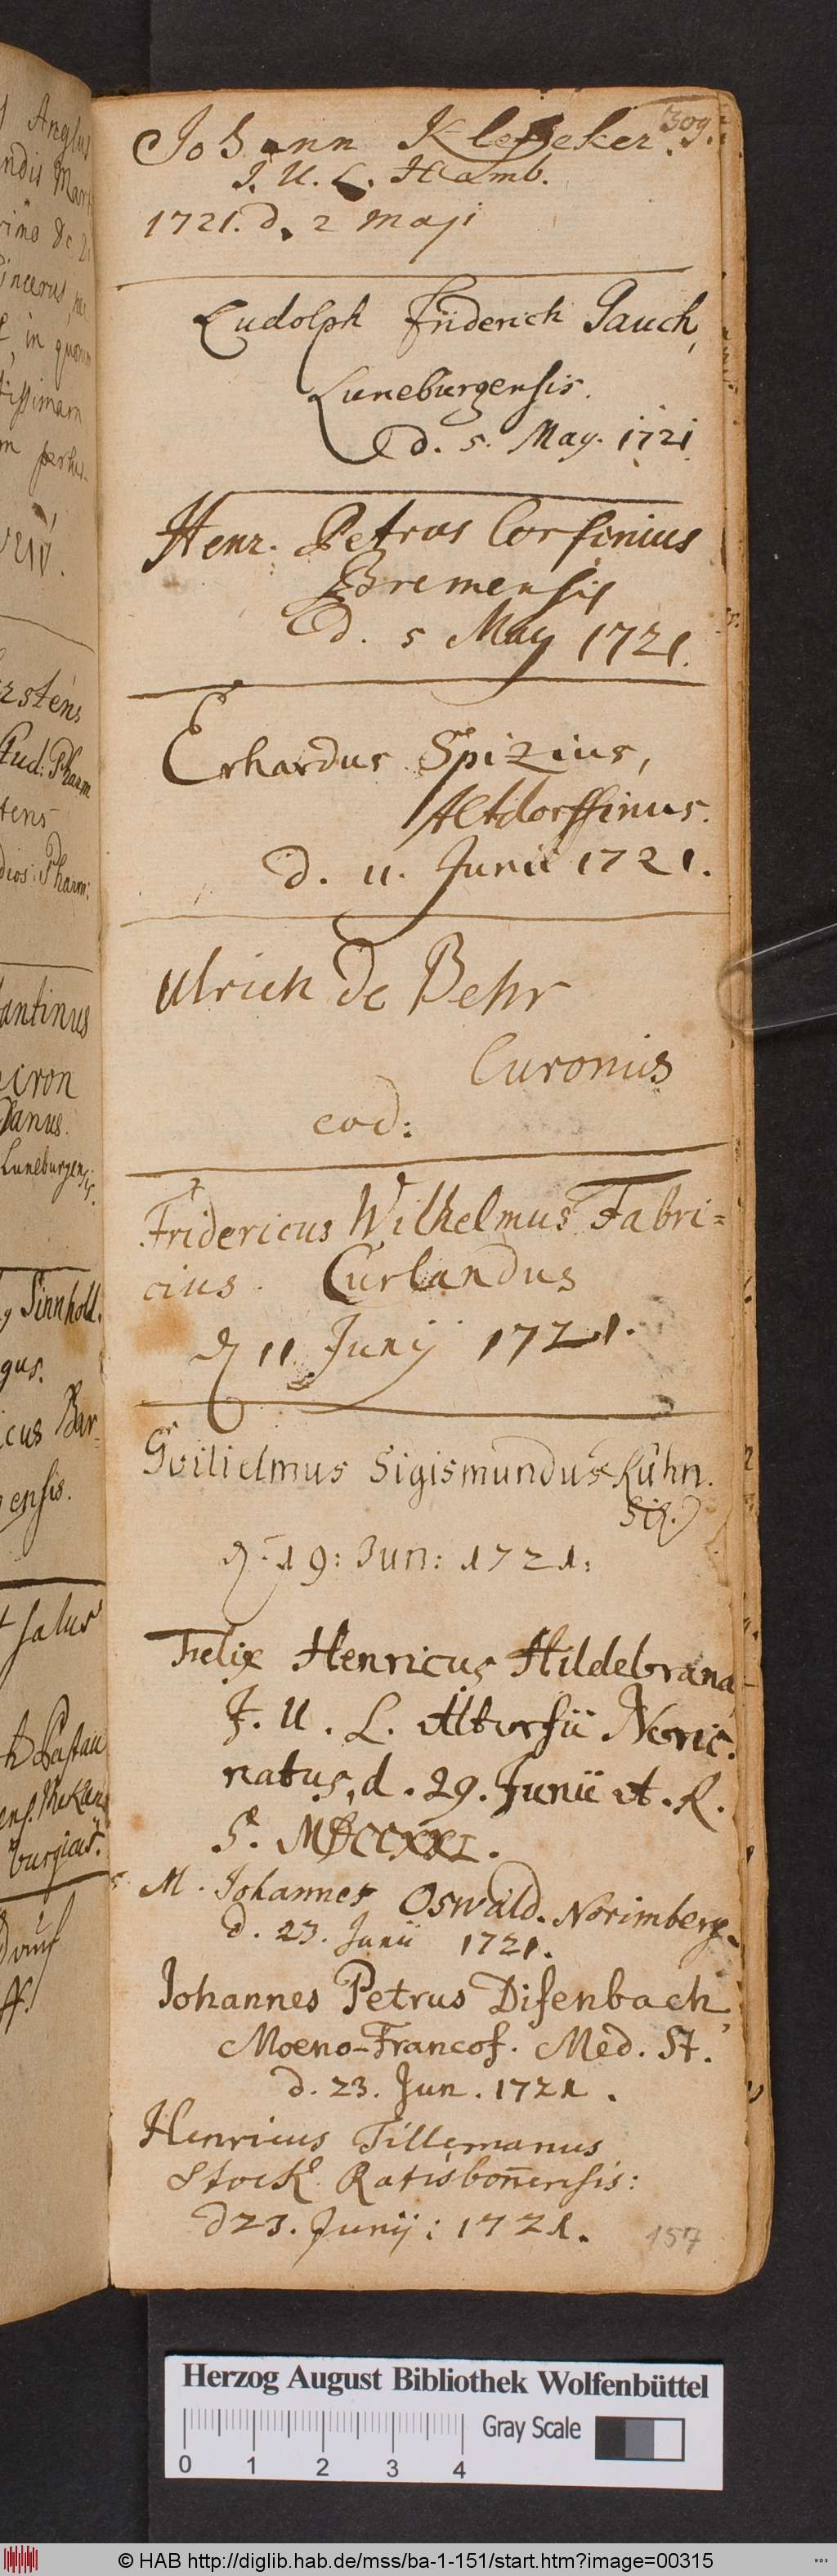 309.
Johann Klefeker.
J. U. L. Hamb.
1721. d. 2 Maji
Ludolph Friderich Jauch,
Luneburgensis.
d. 5. May. 1721
Henr. Petrus Corfinius
Bremensis
d. 5 May 1721.
Erhardus Spizius,
Altdorffinus.
d. 11. Junii 1721.
Ulrich de Behr
Curonus
eod:
Fridericus Wilhelmus Fabri=
cius. Curlandus
d 11 Junij 1721.
Gvilielmus Sigismundus Kühn.
Sil.
d. 19: Jun: 1721:
Felix Henricus Hildebrand,
J. U. L. Altorfii Noric.
natus, d. 29. Junii A. R.
S. MDCCXXI.
M. Johannes Oswald. Norimberg.
d. 23. Junii 1721.
Johannes Petrus Disenbach,
Moeno-Francof. Med. St.
d. 23. Jun. 1721.
Henricus Tillemanus
Stock. Ratisbon̄ensis:
d 23. Junij: 1721.
157
Anglus
Luneburgens
Sinnhold.
gus.
icus Bar-
ensis.
salus
Herzog August Bibliothek Wolfenbüttel
Gray Scale
0 1 2 3 4
© HAB http://diglib.hab.de/mss/ba-1-151/start.htm?image=00315